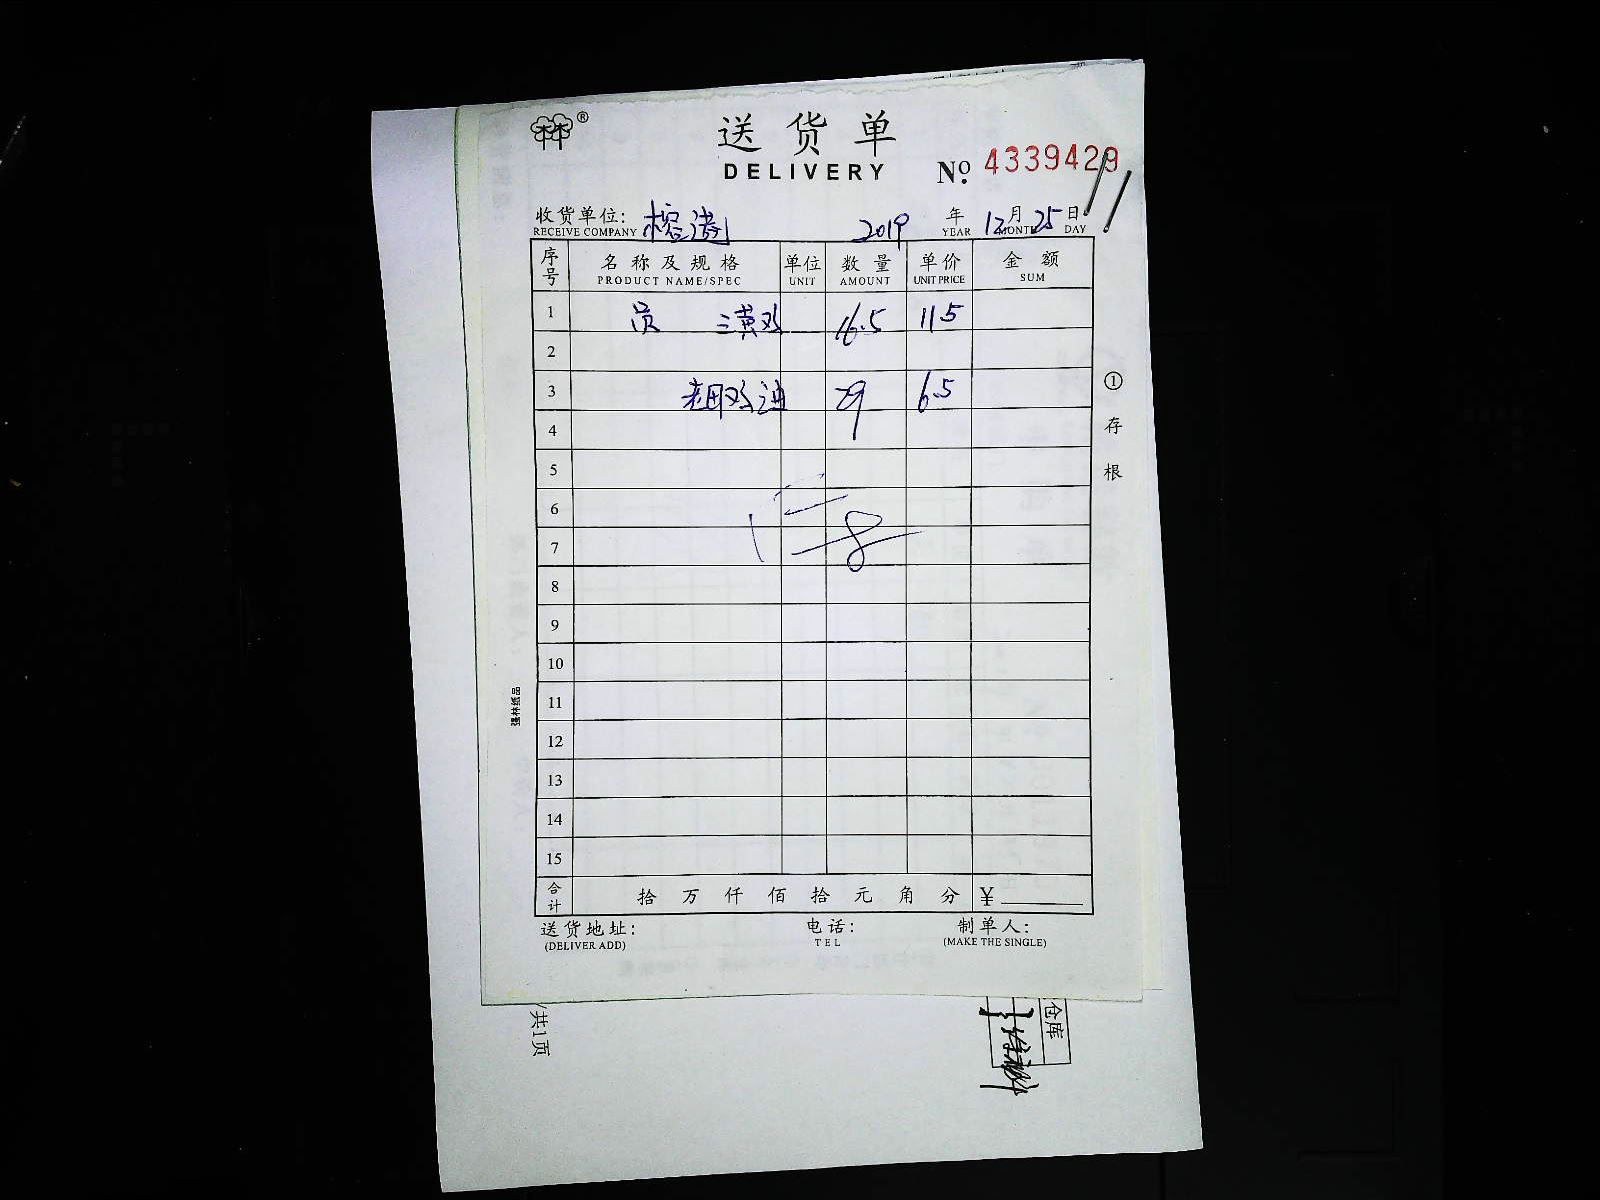 林林®
送货单
DELIVERY
No. 4339429
收货单位: 榕港 2019 年 12 月 25 日
RECEIVE COMPANY YEAR MONTH DAY
序号 名称及规格 单位 数量 单价 金额
PRODUCT NAME/SPEC UNIT AMOUNT UNIT PRICE SUM
1 员 三黄鸡 16.5 11.5
2
3 29 6.5
4
5
6
7
8
9
10
11
12
13
14
15
合计 拾 万 仟 佰 拾 元 角 分 ¥
送货地址: 电话: 制单人:
(DELIVER ADD) TEL (MAKE THE SINGLE)
①存根
强林纸品
/共1页
仓库